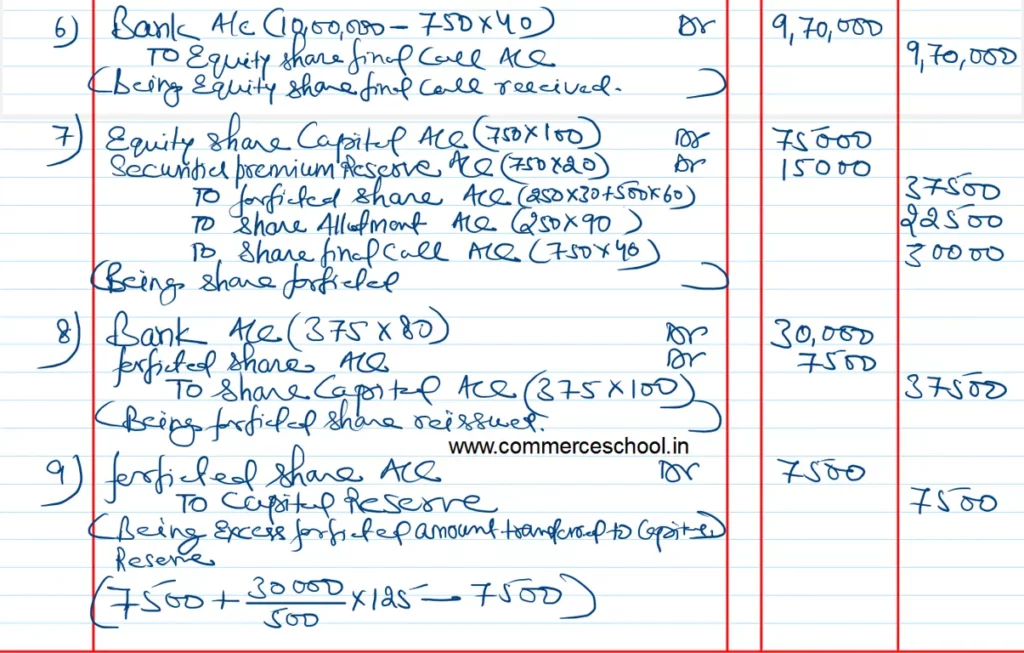 6) Bank A/c (10,00,000 - 750×40) Dr 9,70,000
TO Equity share final Call A/c 9,70,000
(being Equity share final call received.)
7) Equity share Capital A/c (750×100) Dr 75000
Securities premium Reserve A/c (750×20) Dr 15000
TO forfieted share A/c (250×30+500×60) 37500
TO share Allotment A/c (250×90) 22500
TO share final Call A/c (750×40) 30000
(Being share forfieted)
8) Bank A/c (375×80) Dr 30,000
forfieted share A/c Dr 7500
TO share Capital A/c (375×100) 37500
(Being forfieted share reissued.)
www.commerceschool.in
9) forfieted share A/c Dr 7500
TO Capital Reserve 7500
(Being Excess forfieted amount transferred to Capital)
Reserve
(7500 + 30000/500 ×125 - 7500)